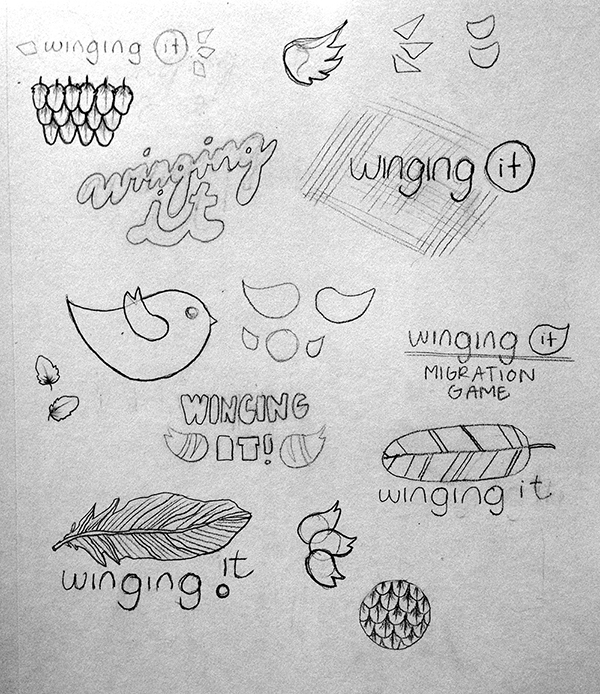 winging it
winging
it
winging it
winging it
MIGRATION
GAME
WINGING
IT!
winging it
winging it